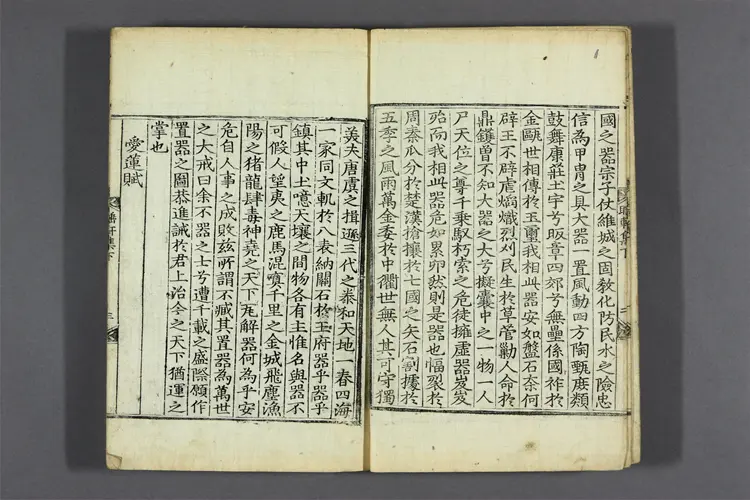 國之器宗子仗維城之固敎化防民水之險忠
信為甲冑之具大器一置風動四方陶甄庶類
鼓舞康莊土宇兮昄章四郊兮無壘係國祚於
金甌世相傳於玉璽我相此器安如盤石奈何
辟王不辟虐焰熾烈刈民生於草菅勦人命於
鼎鑊曾不知大器之大兮擬囊中之一物一人
尸天位之尊千乘馭朽索之危徒擁虛器岌岌
殆而我相此器危如累卵然則是器也幅裂於
周秦瓜分於楚漢搶攘於七國之矢石割據於
五季之風雨萬金委於中衢世無人其可守獨
美夫唐虞之揖遜三代之泰和天地一春四海
一家同文軌於八表納關石於王府器乎器乎
鎮其中土噫天壤之間物各有主惟名與器不
可假人望夷之鹿馬混眞千里之金城飛塵漁
陽之猪龍肆毒神堯之天下瓦解器何為乎安
危自人事之成敗茲所謂不臧其置器為萬世
之大戒曰余不器之士兮遭千載之盛際願作
置器之圖恭進誡於君上治今之天下猶運之
掌也
愛蓮賦
集下